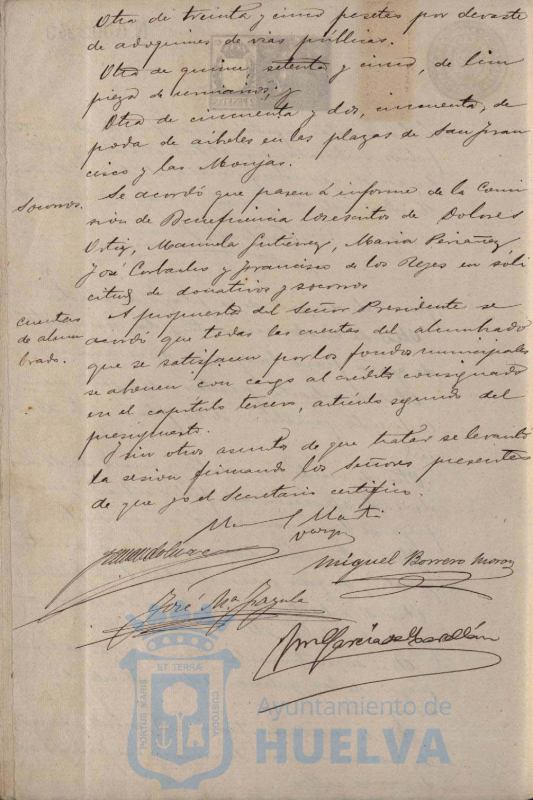 Otra de treinta y cinco pesetas por devaste
de adoquines de vias públicas.
Otra de quince, setenta y cinco, de lim
pieza de urinarios; y
Otra de cincuenta y dos, cincuenta, de
poda de árboles en las plazas de San Fran
cisco y las Monjas.
Socorros.
Se acordó que pasen á informe de la Comi
sión de Beneficencia los escritos de Dolores
Ortiz, Manuela Gutiérrez, Maria Periañez,
José Corbacho y Francisco de los Reyes en soli
citud de donativos y socorros
Cuentas
de alum
brado.
A propuesta del Señor Presidente se
acordó que todas las cuentas del alumbrado
que se satisfacen por los fondos municipales
se abonen con cargo al crédito consignado
en el capitulo tercero, artículo segundo del
presupuesto.
Y sin otros asuntos de que tratar se levantó
la sesión firmando los Señores presentes
de que yo el Secretario certifico.
Vargas
Miguel Borrero Moron
José Mª
García de
ET TERRA
PORTUS MARIS
CUSTODIA
Ayuntamiento de
HUELVA